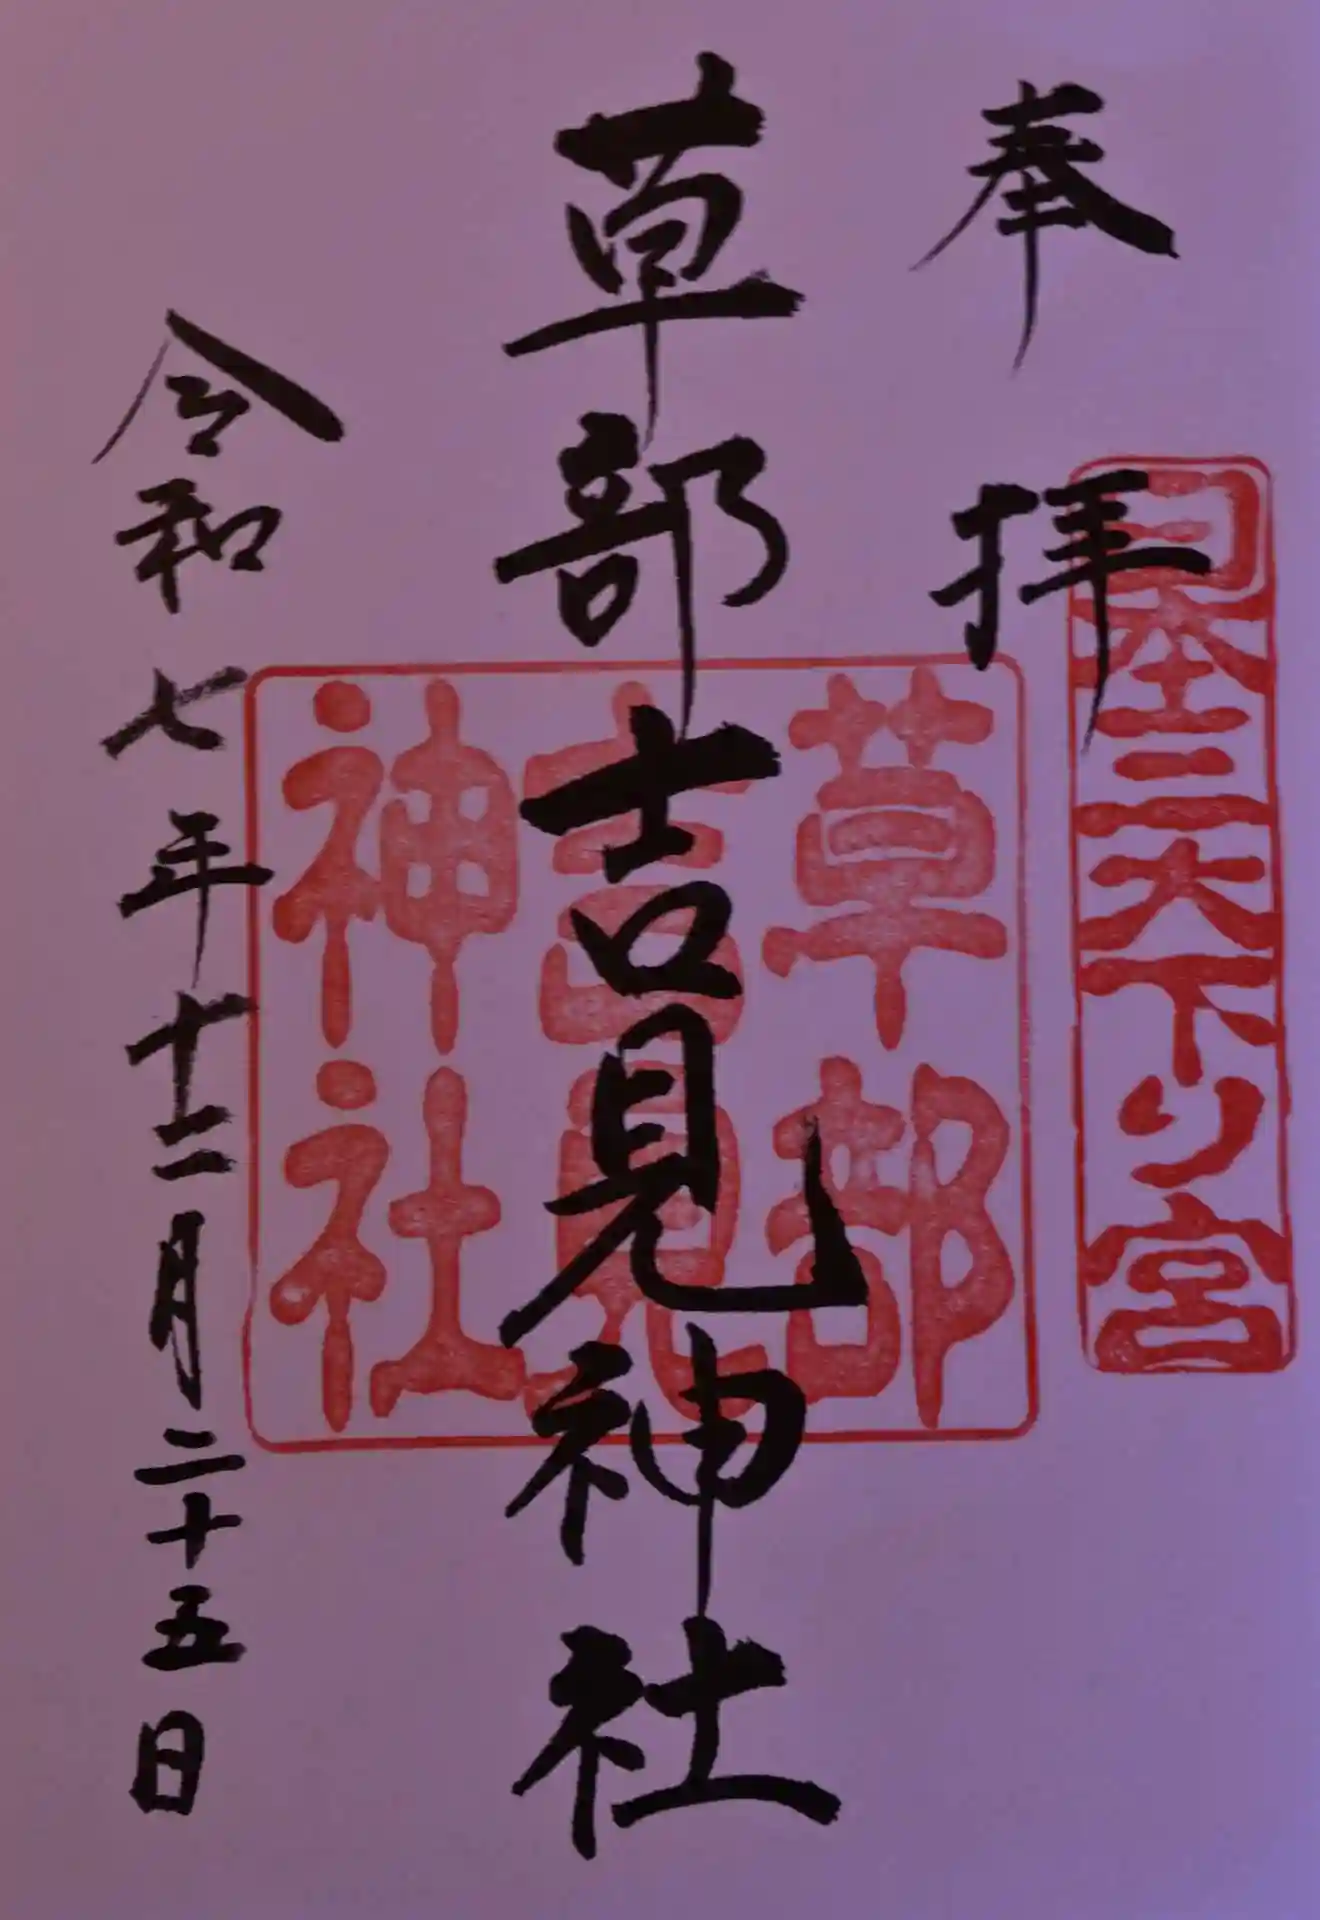 奉拝
日本三大下り宮
草部吉見神社
草部
吉見
神社
令和七年十二月二十五日